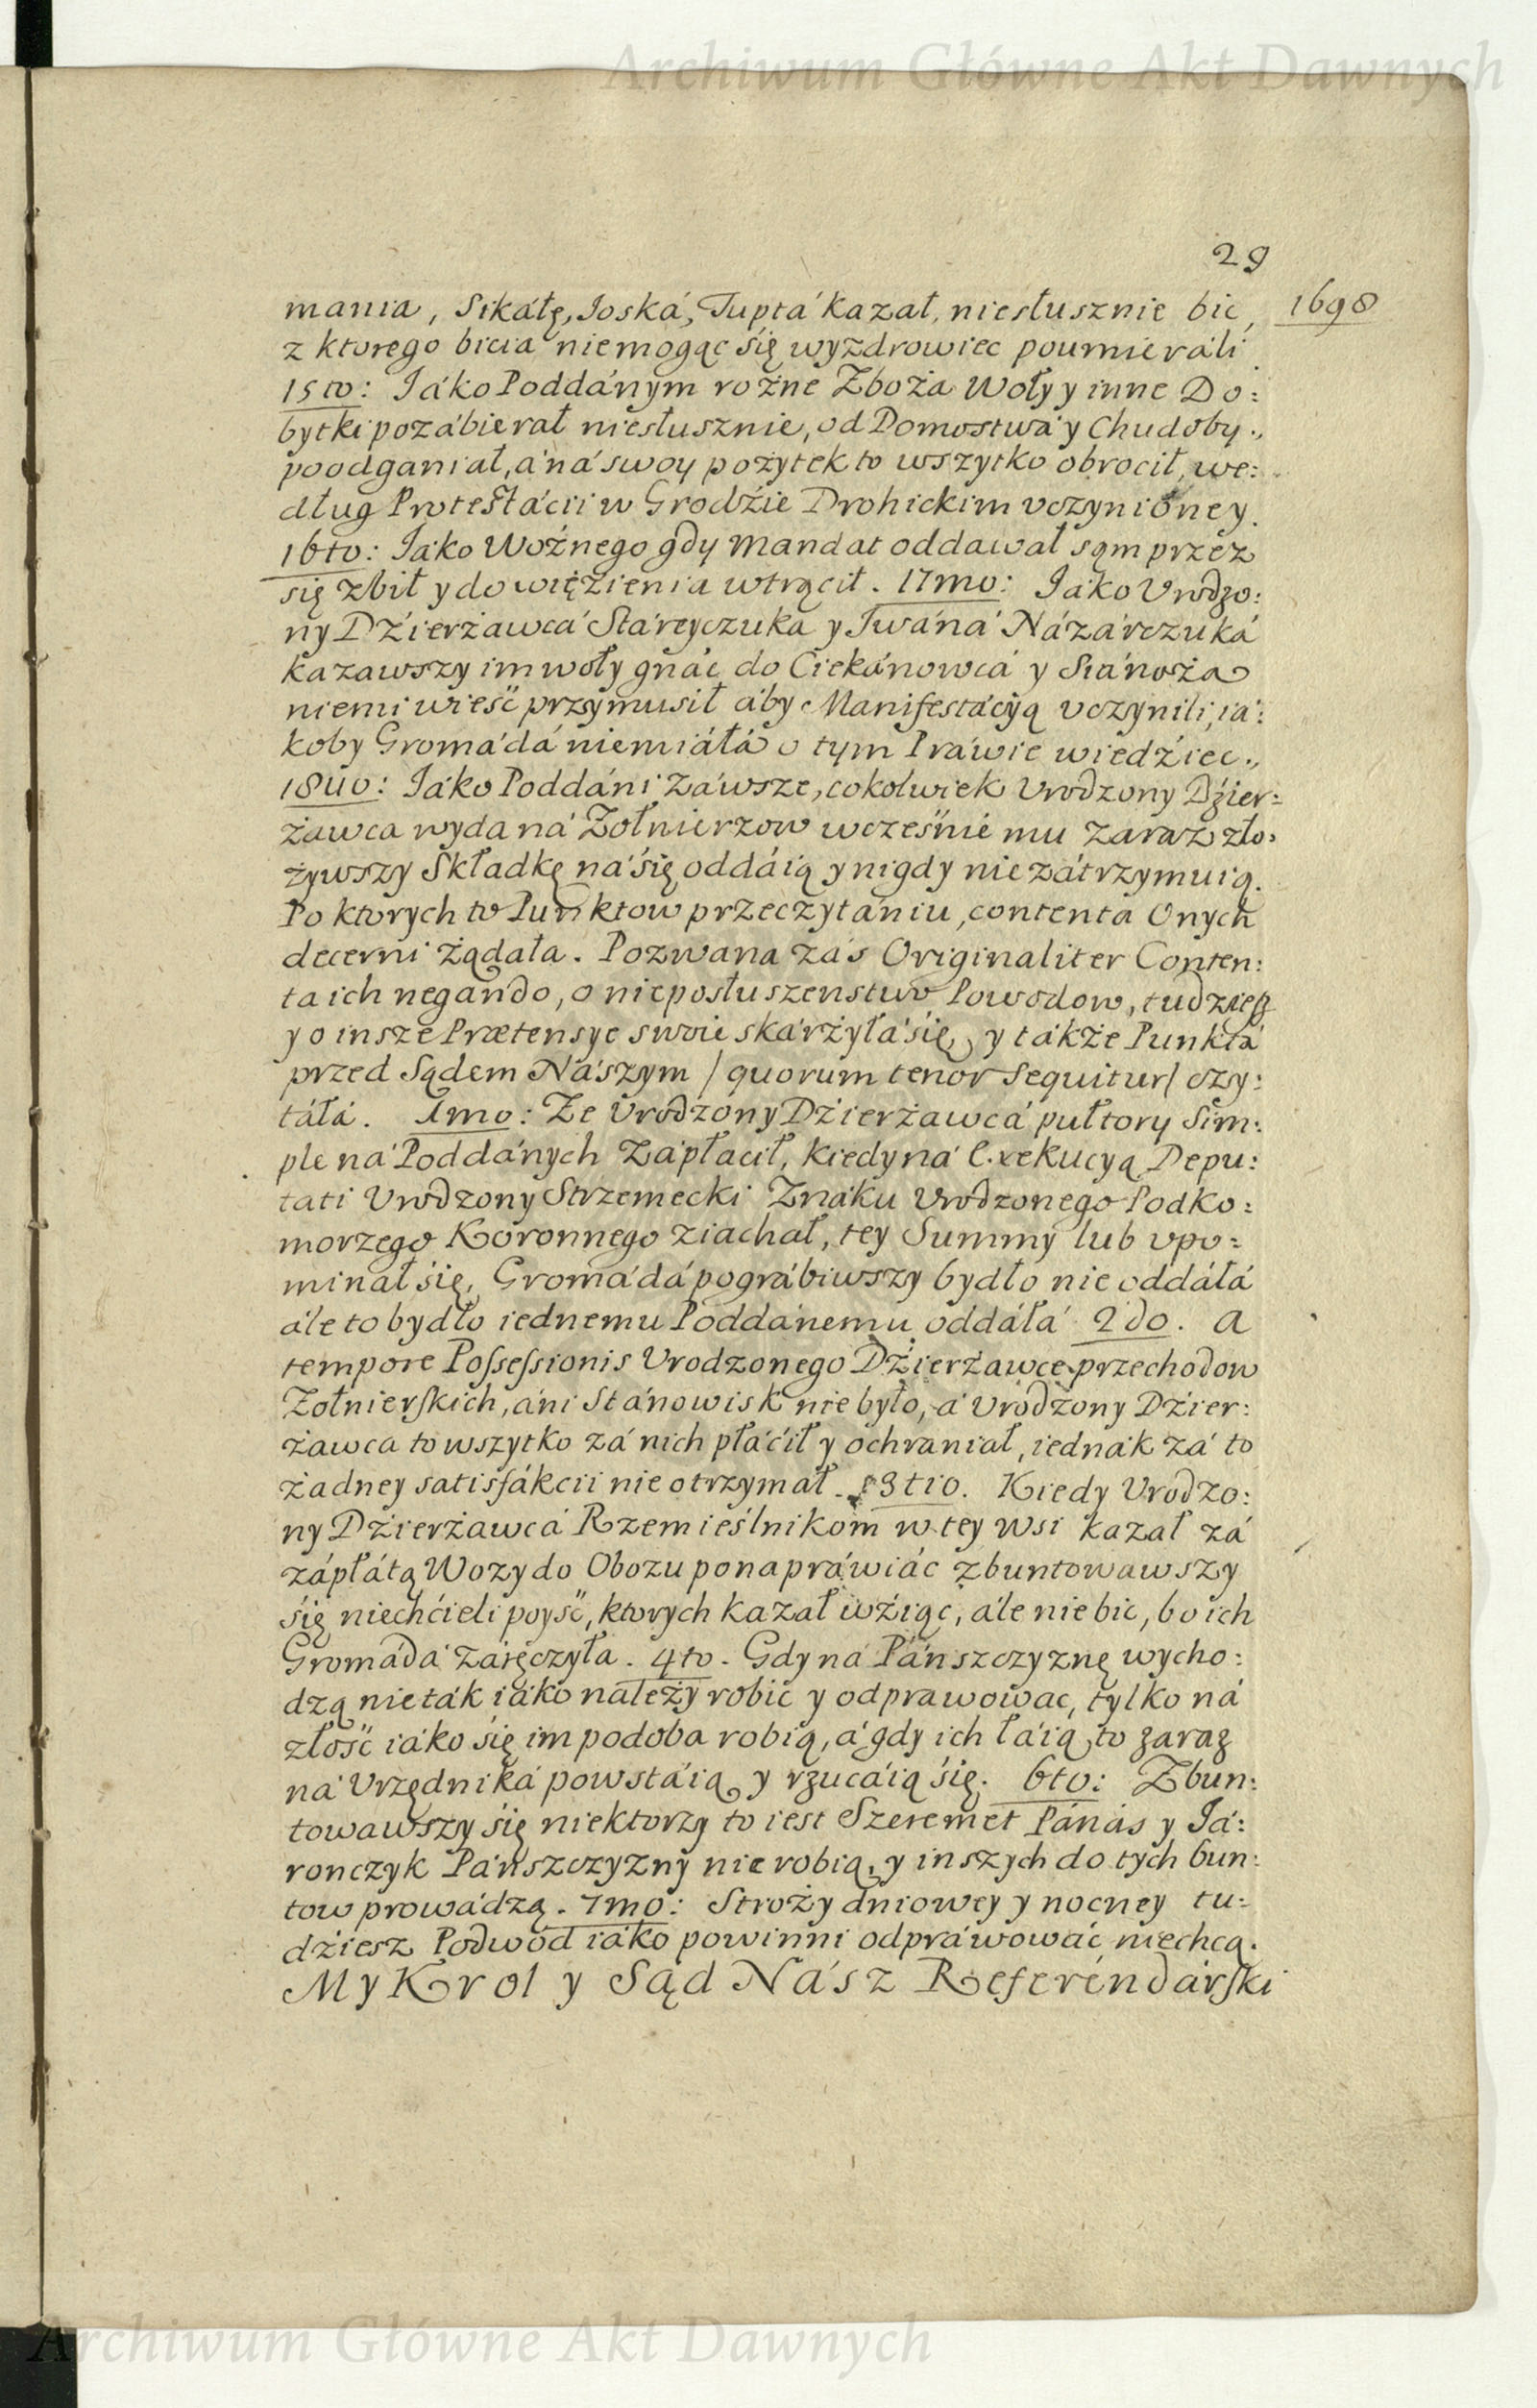 Archiwum Główne Akt Dawnych
29
1698
mania, Sikáłę, Joská, Tuptá kazał, niesłusznie bic,
z ktorego bicia niemogąc się wyzdrowiec poumieráli
15to: Jáko Poddánym rożne Zboża Woły y inne Do:
bytki pozábierał niesłusznie, od Domostwá y Chudoby.,
poodganiał, á ná swoy pożytek to wszytko obrocił, we:
dług Protestácii w Grodźie Drohickim vczynioney.
16to: Jáko Woźnego gdy Mandat oddawał sąm przez
się zbił y do więźienia wtrącił. 17mo: Jáko Vrodzo:
ny Dźierżawcá Stáreyczuká y Jwáná Názárczuká
kazawszy im woły gnác do Ciekánowcá y Siánożá
niemi wieść przymusił áby Manifestácyą vczynili, iá:
koby Gromádá niemiáłá o tym Práwie wiedźiec.,
18uo: Jáko Poddáni záwsze, cokolwiek Vrodzony Dźier:
żawca wyda ná Żołnierzow wcześnie mu zaraz zło:
żywszy Składkę ná się oddáią y nigdy nie zátrzymuią.
Po ktorych to Punktow przeczytániu, contenta Onych
decerni żądała. Pozwana záś Originaliter Conten:
ta ich negando, o nieposłuszenstwo Powodow, tudziesz
y o insze Prætensye swoie skárżyłá się, y tákże Punktá
przed Sądem Nászym / quorum tenor sequitur / czy:
táłá. 1mo: Że Vrodzony Dźierżawcá pułtory Sim:
ple ná Poddánych Zápłacił, kiedy ná Exekucyą Depu:
tati Vrodzony Strzemecki Znáku Vrodzonego Podko:
morzego Koronnego ziachał, tey Summy lub vpo:
minał się, Gromádá pográbiwszy bydło nie oddáłá
ále to bydło iednemu Poddánemu oddáłá 2do. A
tempore Possessionis Vrodzonego Dźierżawce przechodow
Żołnierskich, áni Stánowisk nie było, á Vrodzony Dźier:
żawca to wszytko zá nich płáćił y ochraniał, iednák zá to
żadney satisfákcii nie otrzymał. 3tio. Kiedy Vrodzo:
ny Dźierżawcá Rzemieślnikom w tey wsi kazał zá
zápłátą Wozy do Obozu ponapráwiác zbuntowawszy
się niechćieli poyść, ktorych kazał wźiąc, ále nie bic, bo ich
Gromádá záręczyła. 4to. Gdy ná Pánszczyznę wycho:
dzą nie ták iáko należy robic y odprawowac, tylko ná
złość iáko się im podoba robią, á gdy ich łáią to zaraz
ná Vrzędniká powstáią y rzucáią się. 6to: Zbun:
towawszy się niektorzy to iest Szeremet Pánás y Já:
ronczyk Pánszczyzny nie robią, y inszych do tych bun:
tow prowádzą. 7mo: Stroży dniowey y nocney tu:
dźiesz Podwod iáko powinni odpráwowác niechcą.
My Krol y Sąd Nász Referéndárski
Archiwum Główne Akt Dawnych